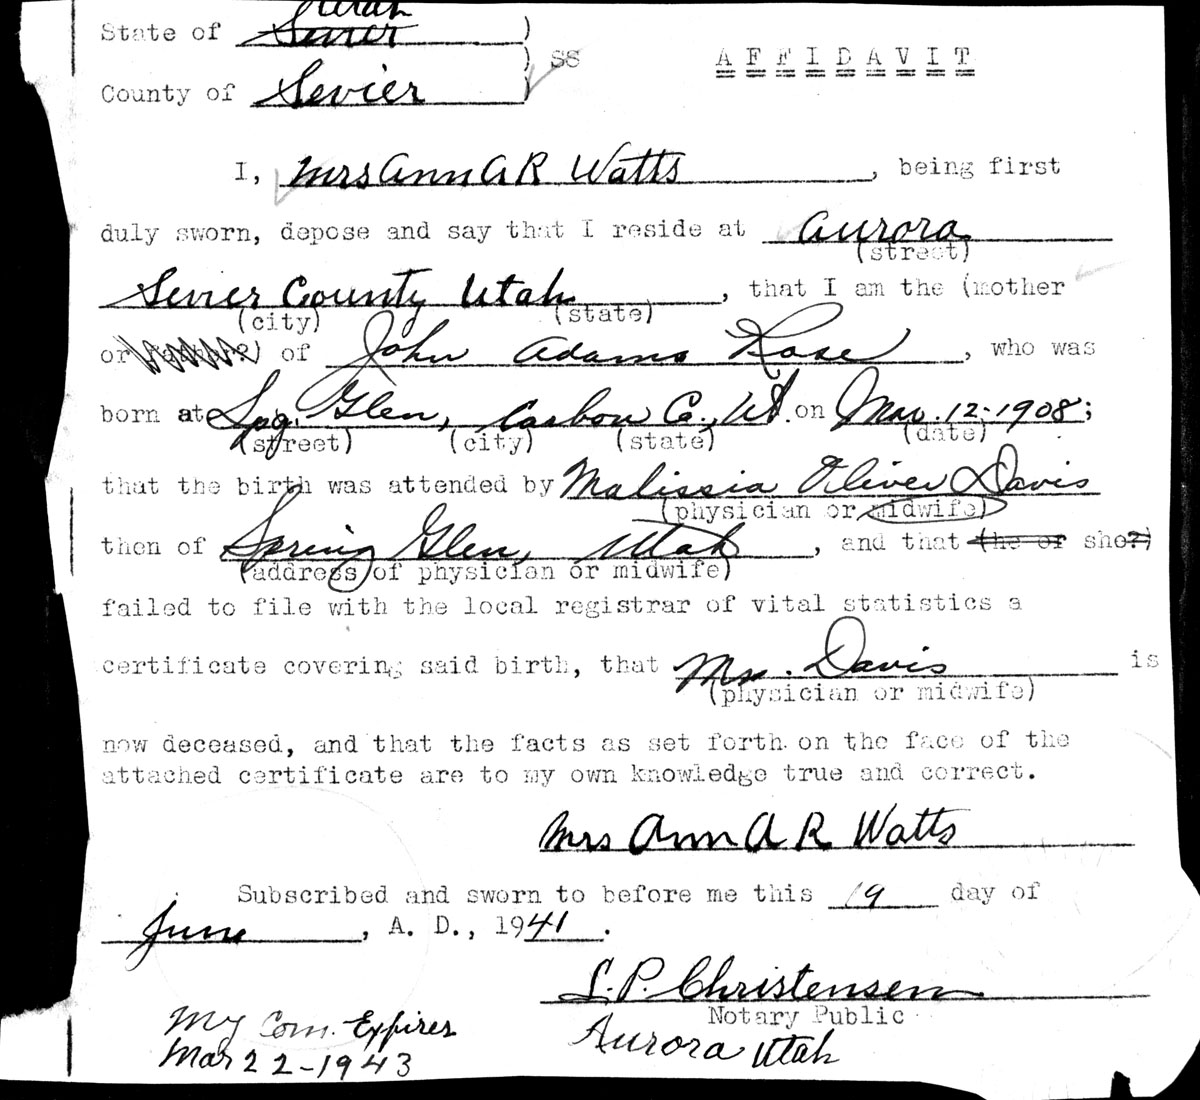 Utah
State of Sevier )
) SS AFFIDAVIT
County of Sevier )
I, Mrs Ann A R Watts, being first
duly sworn, depose and say that I reside at Aurora
(street)
Sevier County Utah, that I am the (mother
(city) (state)
or father?) of John Adams Rose, who was
born at Spg. Glen, Carbon Co., Ut. on Mar. 12-1908;
(street) (city) (state) (date)
that the birth was attended by Malissia Oliver Davis
(physician or midwife)
then of Spring Glen, Utah, and that (he or she?)
(address of physician or midwife)
failed to file with the local registrar of vital statistics a
certificate covering said birth, that Mrs. Davis is
(physician or midwife)
now deceased, and that the facts as set forth on the face of the
attached certificate are to my own knowledge true and correct.
Mrs Ann A R Watts
Subscribed and sworn to before me this 19 day of
June, A. D., 1941.
L. P. Christensen
Notary Public
My Com. Expires Aurora Utah
Mar 22-1943